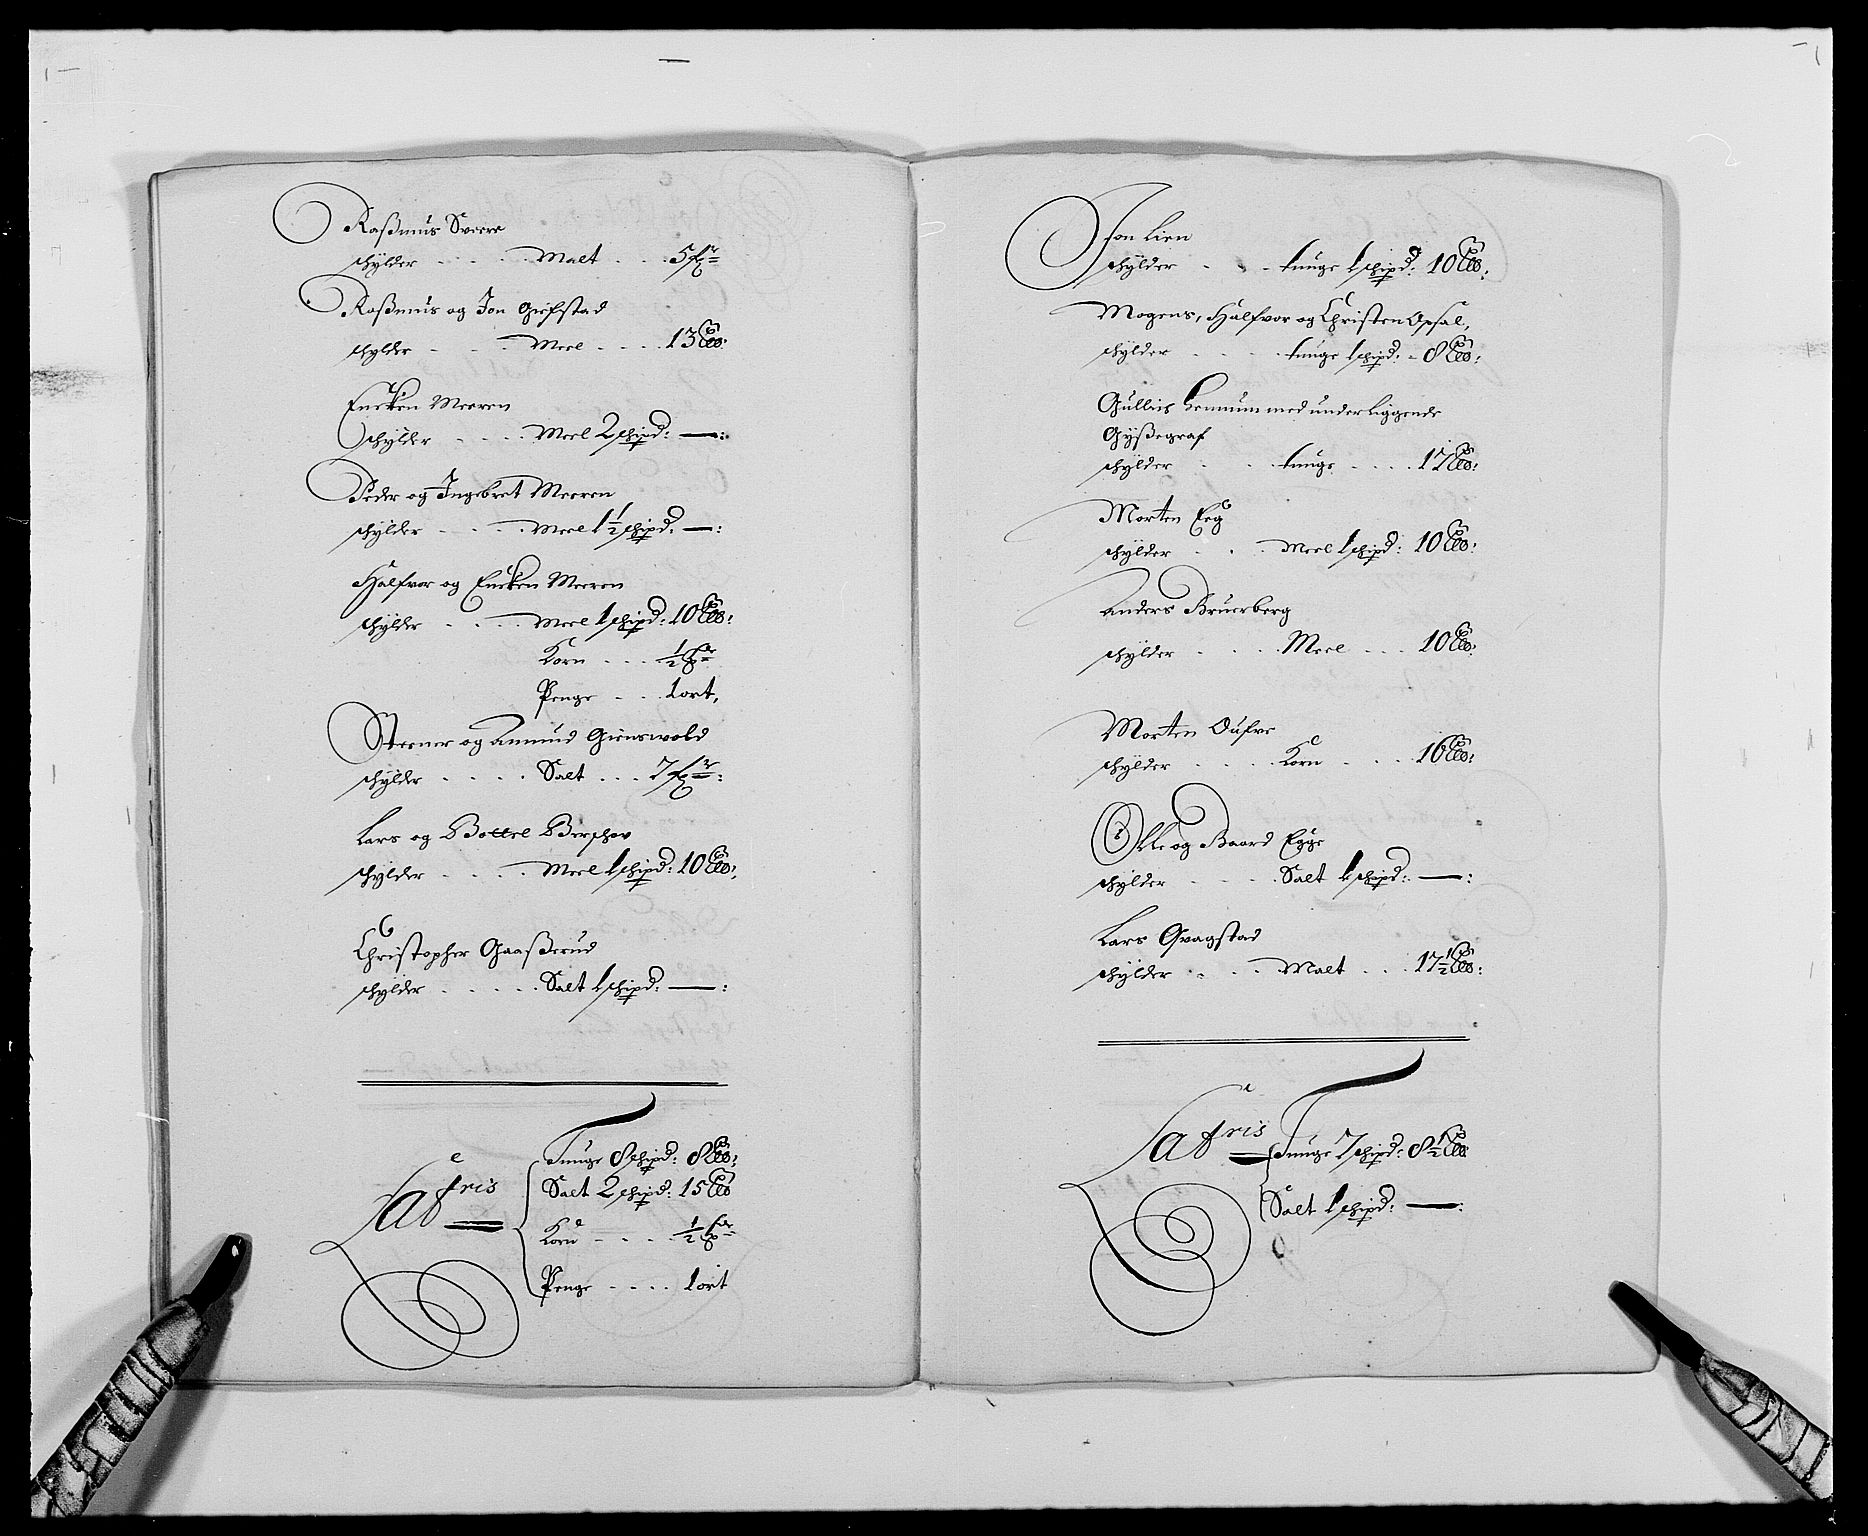 Rasmus Sveere
schylder - - - - Malt - - - 5 fr
Rasmus og Jon Giefstad
schylder - - - Meel - - - - 13 Lb:
Encken Meeren
schylder - - - - Meel 2 schipd: —:
Peder og Ingebret Meeren
schylder - - - Meel 1½ schipd: —:
Halfvor og Encken Meeren
schylder - - - - Meel 1 schipd: 10 Lb:
Korn - - - ½ fr
Penge - - - 1 ort,
Steener og Amund Grønswold
schylder - - - - Salt - - - 7 fr:
Lars og Bottel Berschov
schylder - - - - Meel 1 schipd: 10 Lb:
Christopher Gaaßerud
schylder - - - - - Salt 1 schipd: —:
Lateris
Tunge 8 schipd: 8 Lb:
Salt 2 schipd: 15 Lb
Korn - - - - ½ fr
Penge - - - - 1 ort
Jon Lien
schylder - - - tunge 1 schipd: 10 Lb:
Mogens, Halfvor og Christen Opsal,
schylder - - - - tunge 1 schipd: - 8 Lb:
Gulliis Hennum med underliggende
Gyßegraf
schylder - - - tunge - - - - 17 Lb:
Morten Eeg
schylder - - - Meel 1 schipd: 10 Lb:
Anders Bruerberg
schylder - - - - Meel - - - 10 Lb:
Morten Oufre
schylder - - - - - Korn - - - - 16 Lb:
Olle og Baard Egge
schylder - - - - Salt 1 schipd: —:
Lars Qvagstad
schylder - - - - Malt - - - 17½ Lb:
Lateris
Tunge 7 schipd: 8½ Lb
Salt 1 schipd: —: